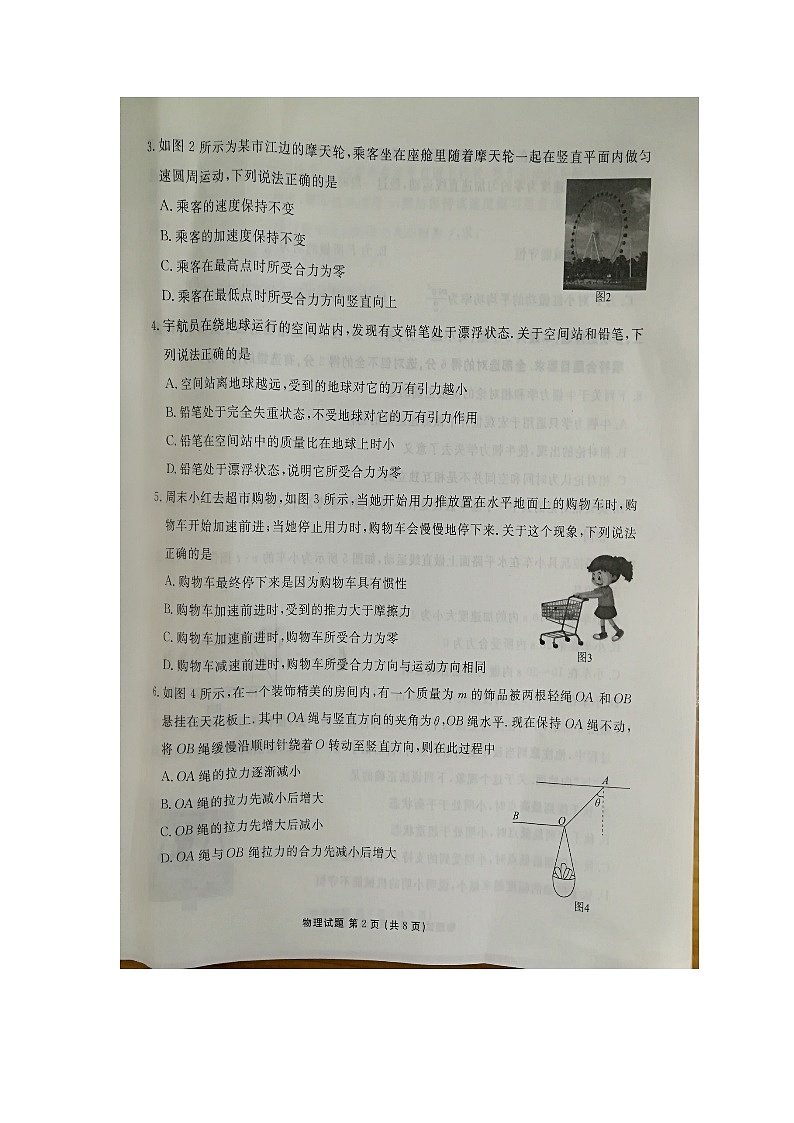 3. 如图2所示为某市江边的摩天轮,乘客坐在座舱里随着摩天轮一起在竖直平面内做匀
速圆周运动,下列说法正确的是
A. 乘客的速度保持不变
B. 乘客的加速度保持不变
C. 乘客在最高点时所受合力为零
D. 乘客在最低点时所受合力方向竖直向上
图2
4. 宇航员在绕地球运行的空间站内,发现有支铅笔处于漂浮状态.关于空间站和铅笔,下
列说法正确的是
A. 空间站离地球越远,受到的地球对它的万有引力越小
B. 铅笔处于完全失重状态,不受地球对它的万有引力作用
C. 铅笔在空间站中的质量比在地球上时小
D. 铅笔处于漂浮状态,说明它所受合力为零
5. 周末小红去超市购物,如图3所示,当她开始用力推放置在水平地面上的购物车时,购
物车开始加速前进;当她停止用力时,购物车会慢慢地停下来.关于这个现象,下列说法
正确的是
A. 购物车最终停下来是因为购物车具有惯性
B. 购物车加速前进时,受到的推力大于摩擦力
C. 购物车加速前进时,购物车所受合力为零
D. 购物车减速前进时,购物车所受合力方向与运动方向相同
图3
6. 如图4所示,在一个装饰精美的房间内,有一个质量为m的饰品被两根轻绳OA和OB
悬挂在天花板上.其中OA绳与竖直方向的夹角为θ,OB绳水平.现在保持OA绳不动,
将OB绳缓慢沿顺时针绕着O转动至竖直方向,则在此过程中
A. OA绳的拉力逐渐减小
B. OA绳的拉力先减小后增大
C. OB绳的拉力先增大后减小
D. OA绳与OB绳拉力的合力先减小后增大
A
θ
B
O
图4
物理试题 第2页(共8页)